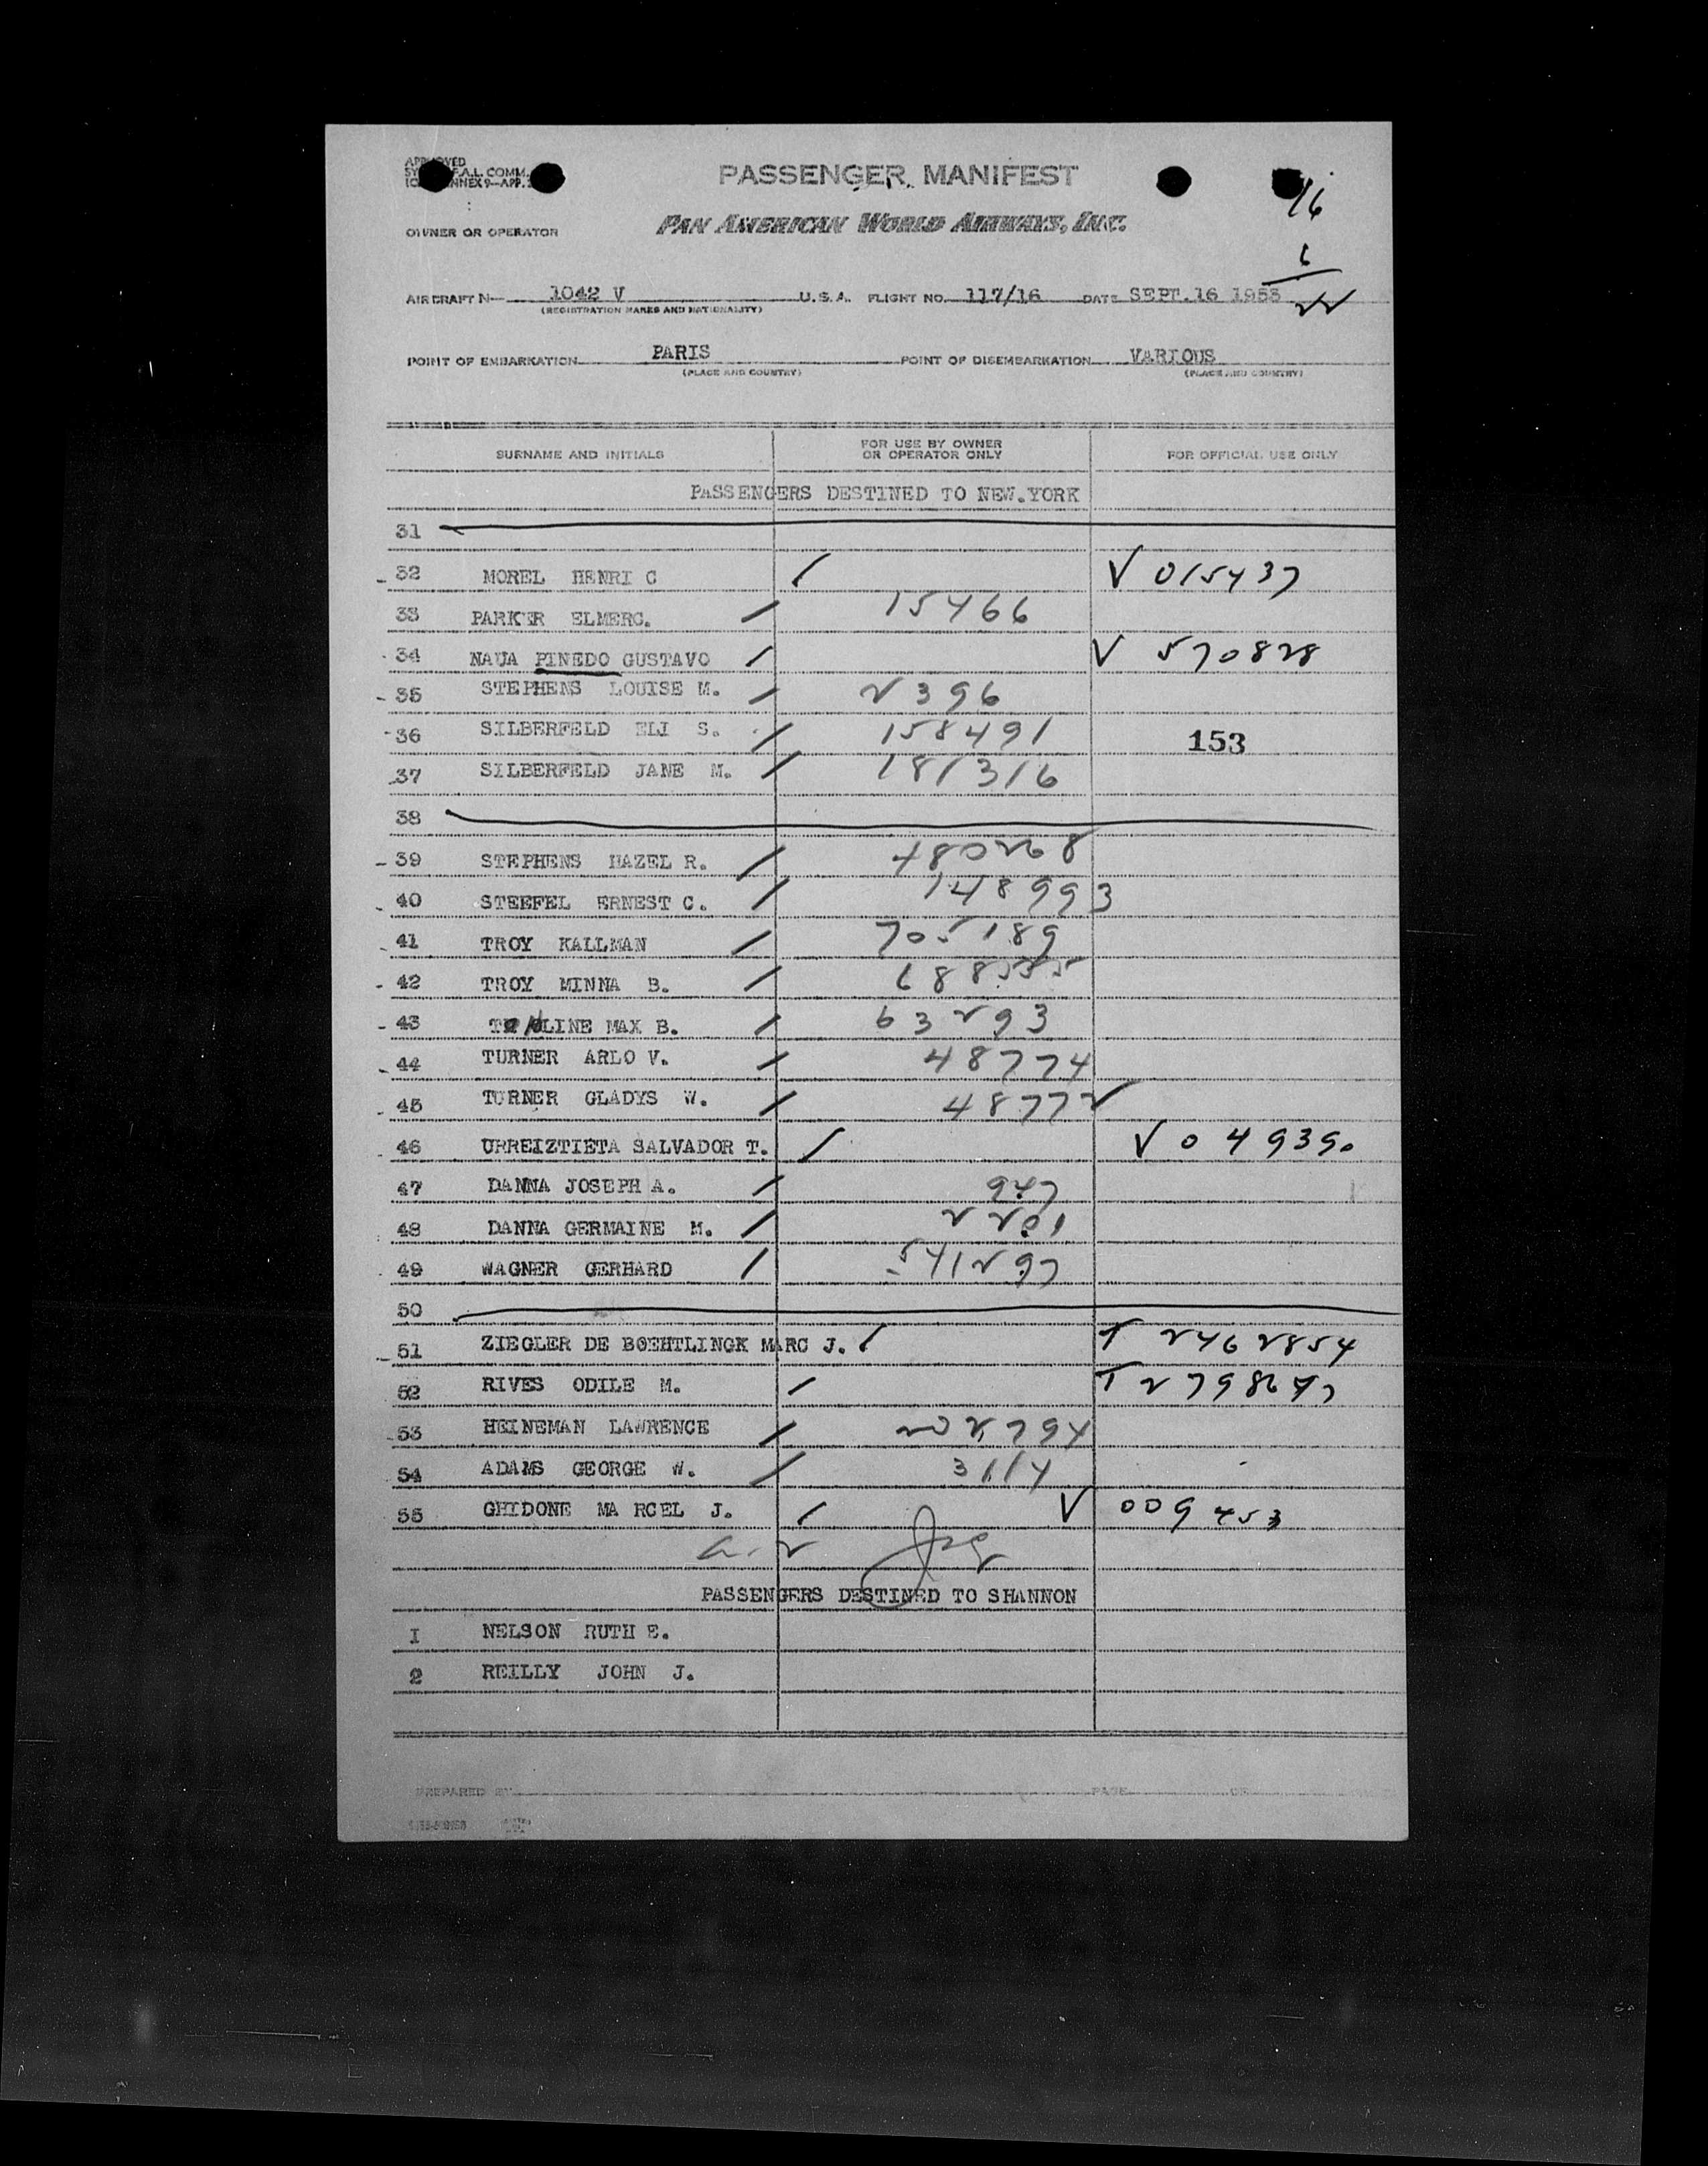 APPROVED
F.A.L. COMM.
ANNEX 9-APP.
PASSENGER MANIFEST
16
OWNER OR OPERATOR
PAN AMERICAN WORLD AIRWAYS, INC.
6
22
AIRCRAFT N- 1042 V U.S.A. FLIGHT NO. 117/16 DATE SEPT.16 1953
(REGISTRATION MARKS AND NATIONALITY)
POINT OF EMBARKATION PARIS POINT OF DISEMBARKATION VARIOUS
(PLACE AND COUNTRY) (PLACE AND COUNTRY)
SURNAME AND INITIALS FOR USE BY OWNER OR OPERATOR ONLY FOR OFFICIAL USE ONLY
PASSENGERS DESTINED TO NEW.YORK
31
32 MOREL HENRI C / V 015437
33 PARKER ELMERC. / 15466
34 NAUA PINEDO GUSTAVO / V 570828
35 STEPHENS LOUISE M. / 2396
36 SILBERFELD ELI S. / 158491 153
37 SILBERFELD JANE M. / 181316
38
39 STEPHENS HAZEL R. /
40 STEEFEL ERNEST C. / 148993
41 TROY KALLMAN / 705189
42 TROY MINNA B. /
43 LINE MAX B. / 63293
44 TURNER ARLO V. / 48774
45 TURNER GLADYS W. / 48772
46 URREIZTIETA SALVADOR T. / V 049390
47 DANNA JOSEPH A. /
48 DANNA GERMAINE M. /
49 WAGNER GERHARD /
50
51 ZIEGLER DE BOEHTLINGK MARC J. / T 2462854
52 RIVES ODILE M. / T
53 HEINEMAN LAWRENCE /
54 ADAMS GEORGE W. / 3114
55 GHIDONE MA RCEL J. / V 009453
PASSENGERS DESTINED TO SHANNON
I NELSON RUTH E.
2 REILLY JOHN J.
PREPARED BY PAGE OF